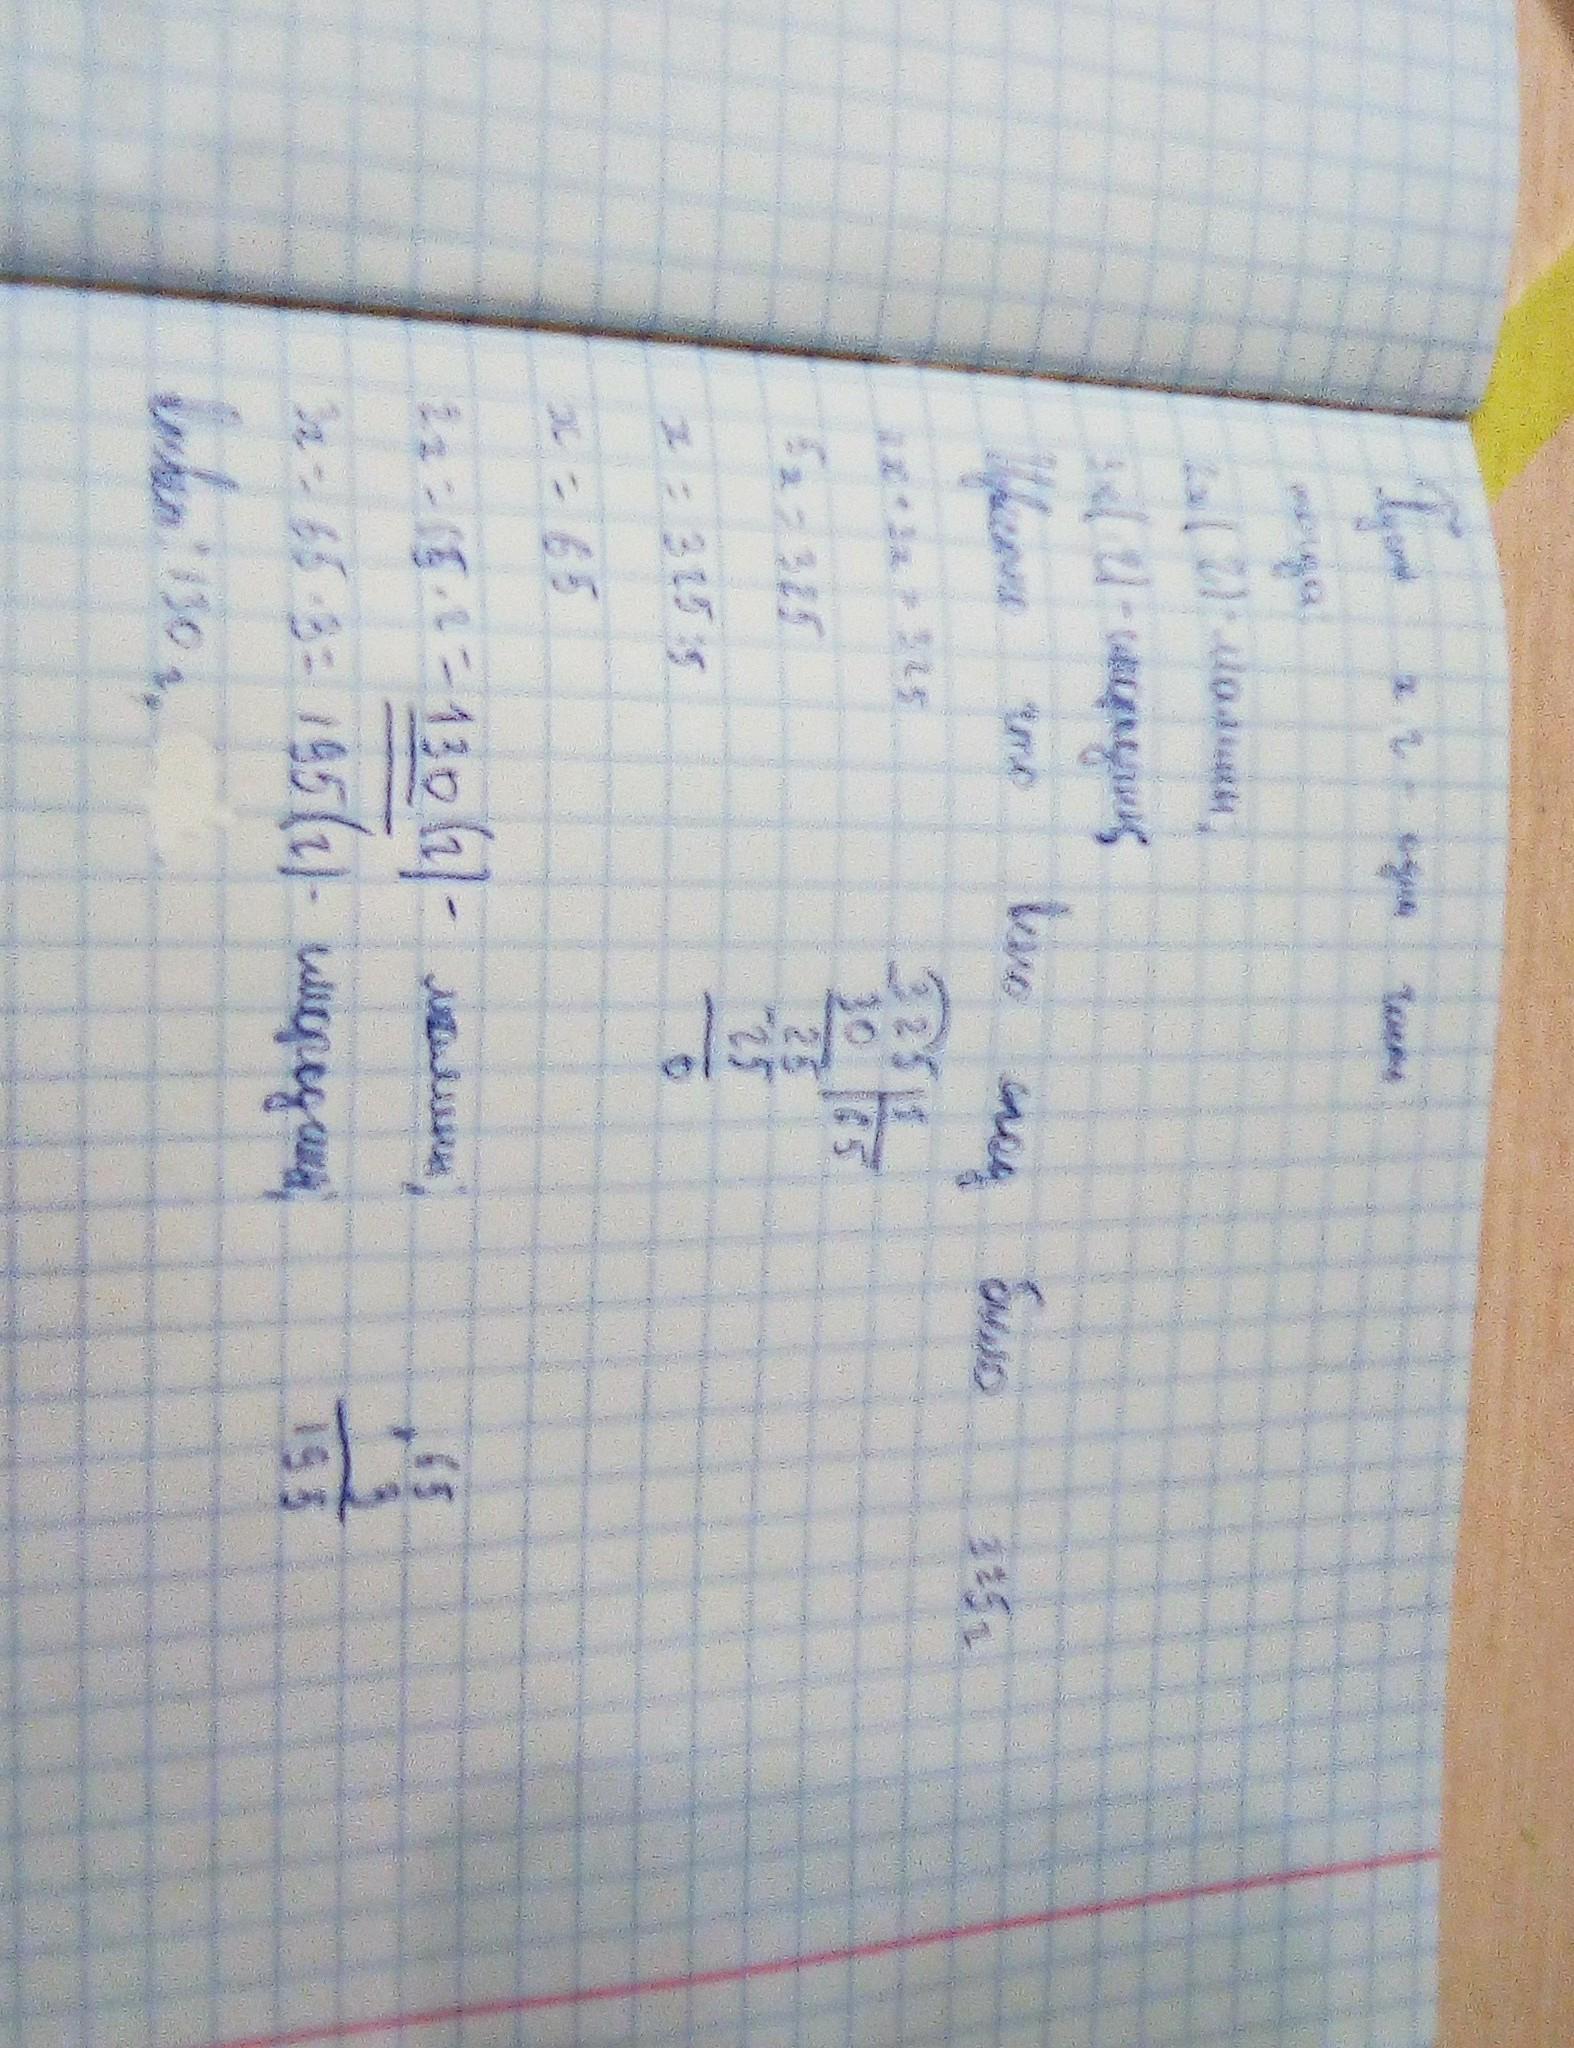 Пусть x г - одна часть
тогда
2x (г) - малины,
3x (г) - шелковицы
Известно что всего ягод было 325 г
2x + 3x = 325
5x = 325
x = 325 : 5
x = 65
325 | 5
30 | 65
25
- 25
0
2x = 65 · 2 = 130 (г) - малины,
3x = 65 · 3 = 195 (г) -
65
× 3
195
Ответ: 130 г.